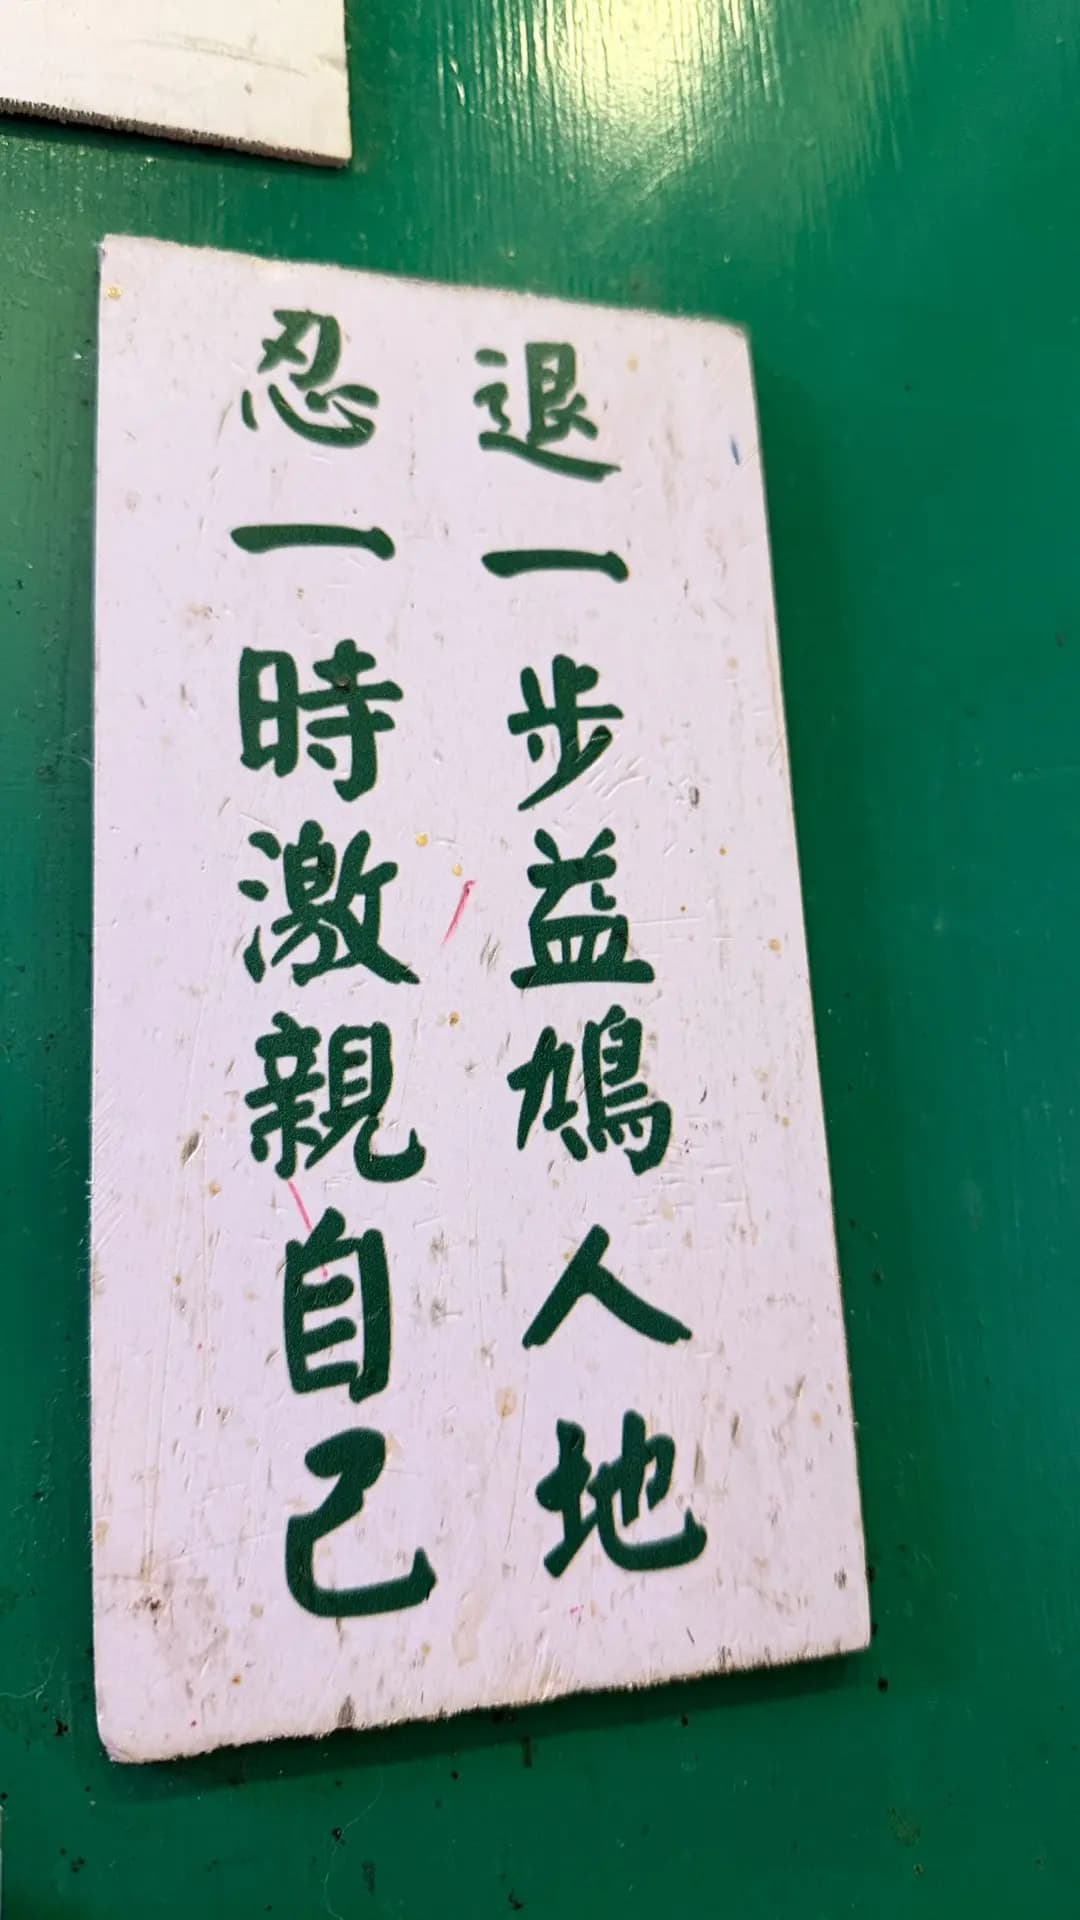 退一步益鳩人地
忍一時激親自己